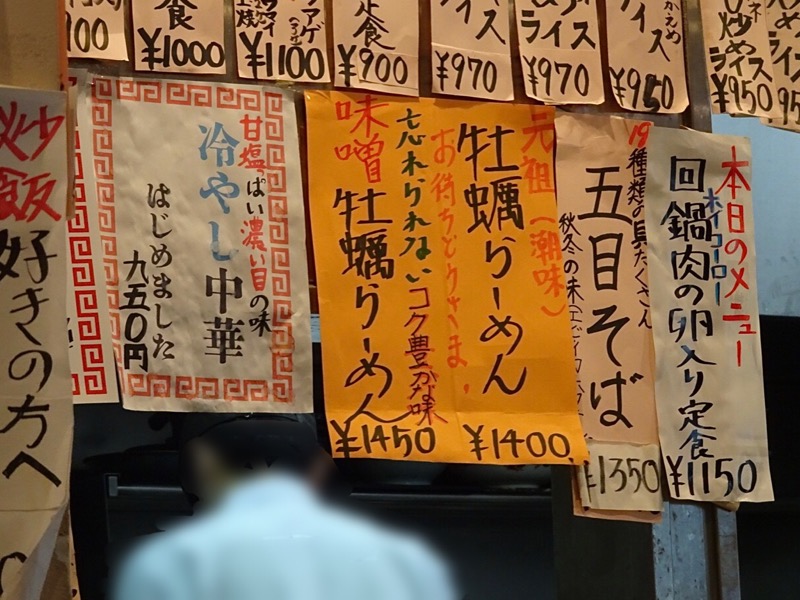 食
¥1000
¥1100
定食
¥900
イス
¥970
ライス
¥970
イス
¥950
炒め
ライス
¥950
本日のメニュー
ホイコーロー
回鍋肉の卵入り定食
¥1150
19種類の具たくさん
五目そば
秋冬の味
¥1350
元祖(潮味)
牡蠣らーめん
お待ちどうさま。
¥1400
忘れられない
コク豊かな味
味噌牡蠣らーめん
¥1450
甘塩っぱい濃い目の味
冷やし中華
はじめました
九五〇円
炒飯
好きの方へ